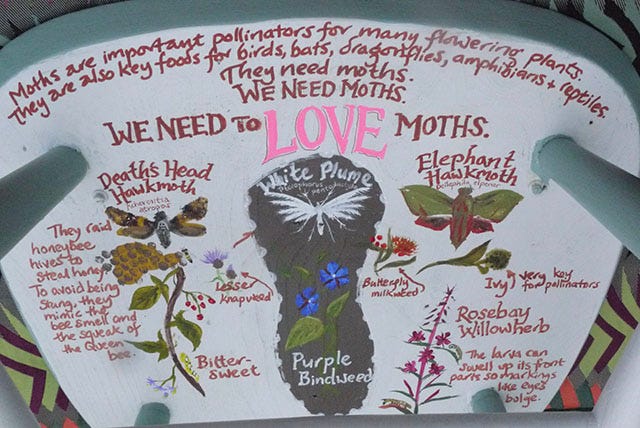 Moths are important pollinators for many flowering plants.
They are also key foods for birds, bats, dragonflies, amphibians + reptiles.
They need moths.
WE NEED MOTHS.
WE NEED TO LOVE MOTHS.
Death's Head
Hawkmoth
atropos
They raid
honeybee
hives to
steal honey
To avoid being
stung, they
mimic the
bee smell and
the squeak of
the Queen
bee.
Lesser
Knapweed
Bitter-
sweet
White Plume
Pterophorus
pentadactyla
Purple
Bindweed
Elephant
Hawkmoth
Deilephila elpenor
Butterfly
milkweed
Ivy very key
for pollinators
Rosebay
Willowherb
The larva can
swell up its front
parts so markings
like eyes
bolge.